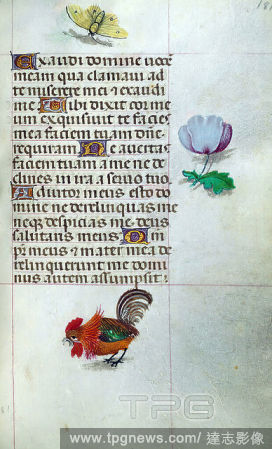 Exaudi domine vocē
meam qua clamavi ad
te miserere mei ⁊ exaudi
me Tibi dixit cor me
um exquisivit te facies
mea faciem tuam dn̄e
requiram Ne avertas
faciem tuam a me ne de
clines in ira a servo tuo
Adiutor meus esto do
mine ne derelinquas me
neqꝫ despicias me deus
salutaris meus Qm̄
pr̄ meus ⁊ mater mea de
relinquerunt me domi
nus autem assumpsit
TPG
www.tpgnews.com/達志影像